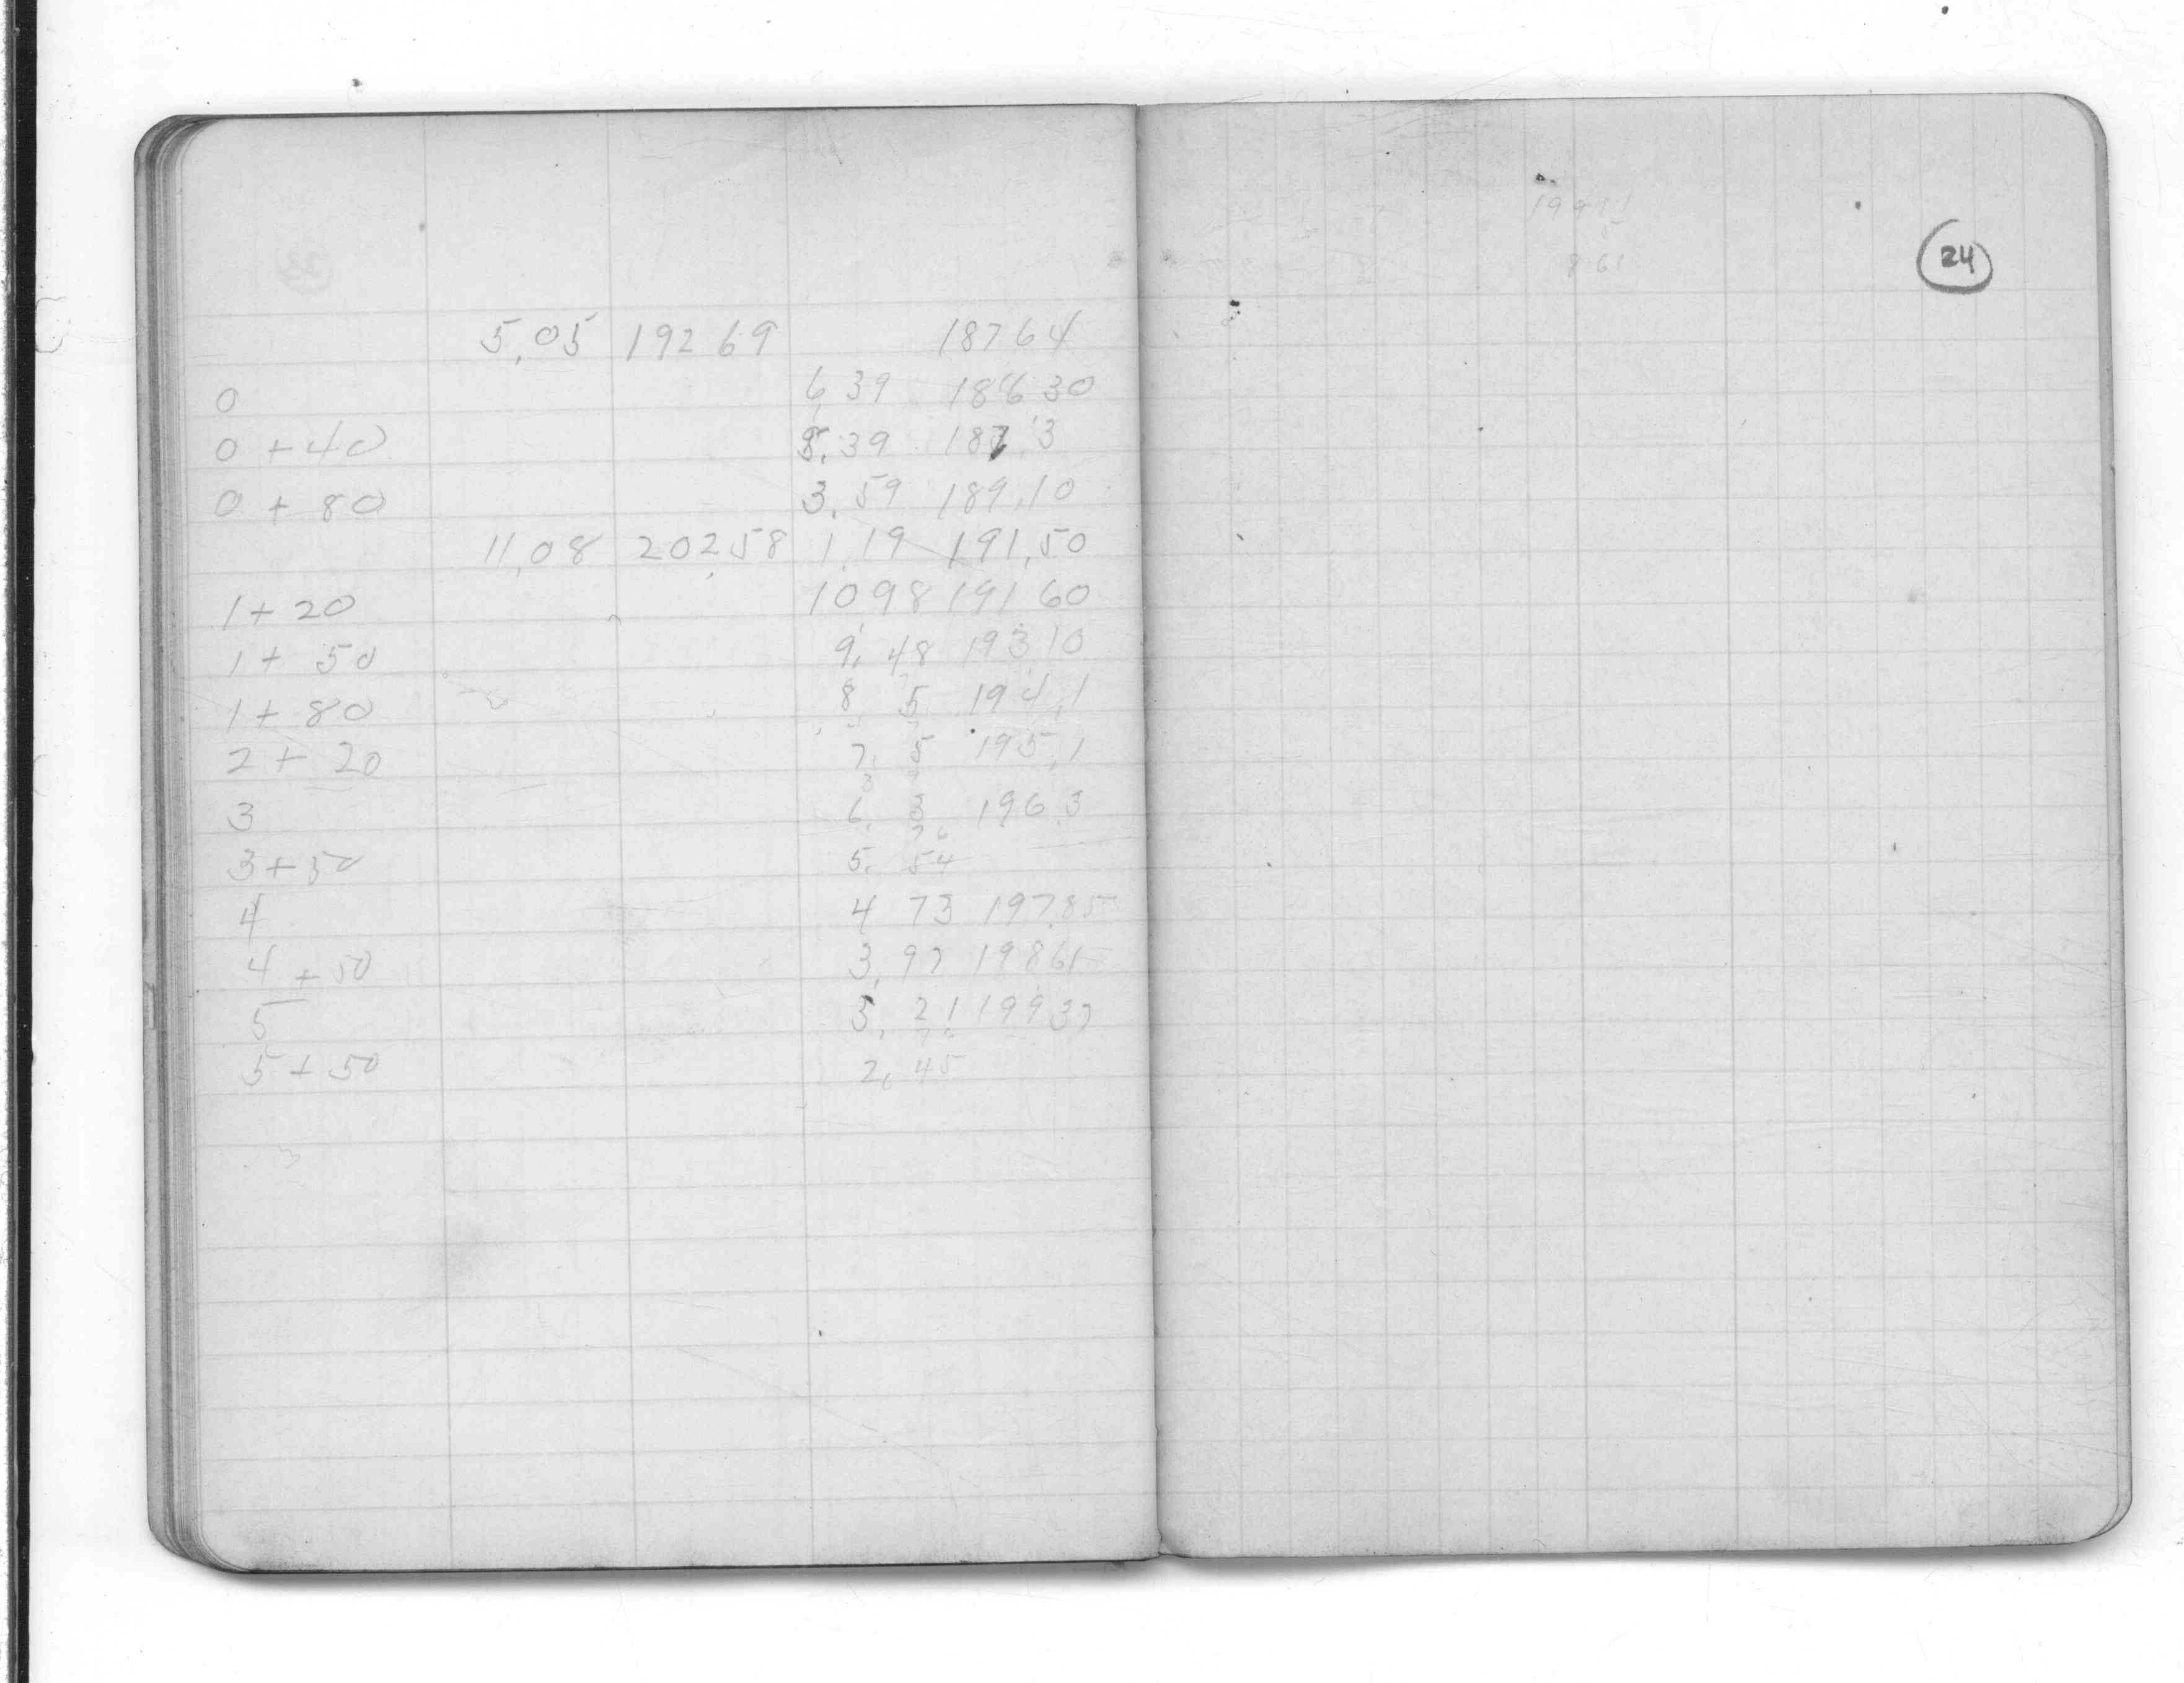 5,05 192 69 187 64
0 6,39 186 30
0 + 40 5,39 187,3
0 + 80 3,59 189,10
11,08 202,58 1,19 191,50
1 + 20 10,98 191 60
1 + 50 9,48 193 10
1 + 80 8 5 194,1
2 + 20 7, 5 195,1
3 6, 3 196,3
3 + 50 5, 54
4 4 73 197,85
4 + 50 3,97 19861
5 3, 21 199 37
5 + 50 2, 45
24